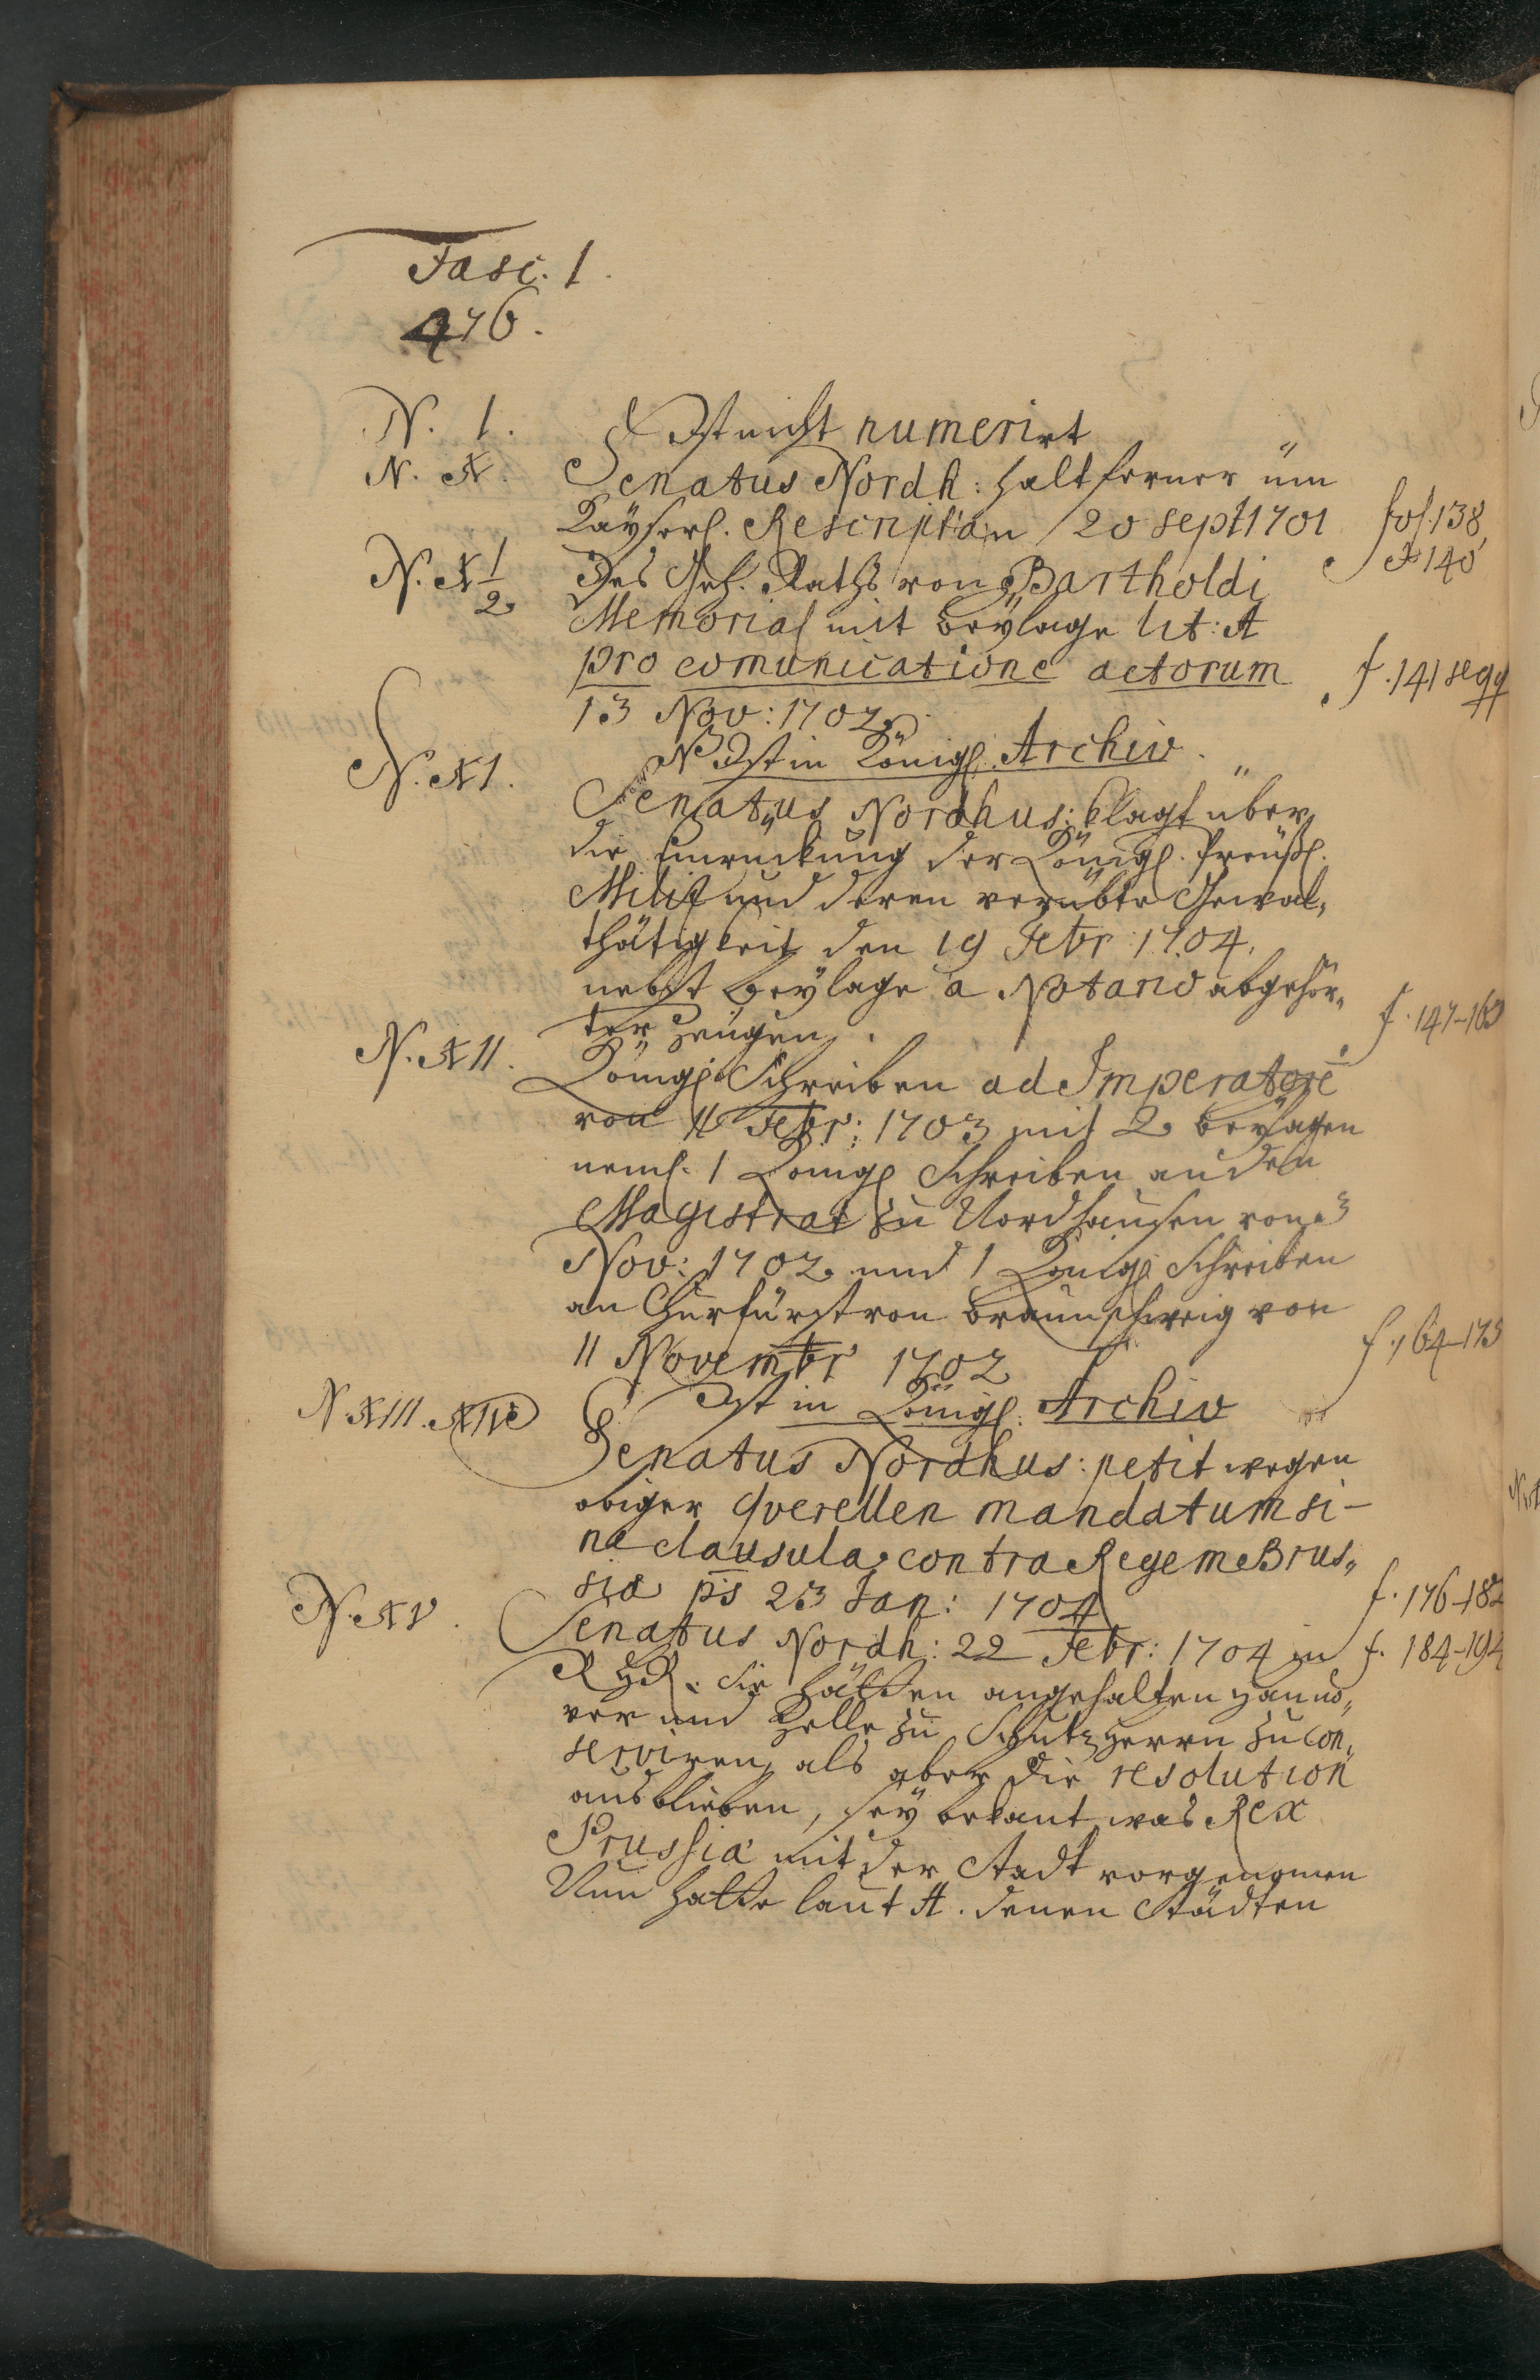 Fasc. 1.
476.
N. 1. Ist nicht numerirt
N. X. Senatus Nordh: halt ferner üm
Kaÿserl. Rescript an 20 sept 1701 fol. 138,
& 140
N. X 1/2 Des Geh. Raths von Bartholdi
Memorial mit beÿlage lit: A
pro comunicatione actorum f. 141 seqq
13 Nov: 1702.
NB Ist in Königl. Archiv.
N. XI. Senatus Nordhus: klagt über
die Einruckung der Königl. Preußl.
Militz und deren verübte Gewal„
thätigkeit den 19 Febr: 1704.
nebst beÿlage a Notario abgehör„
ter Zeugen. f. 147-163
N. XII. Königl. Schreiben ad Imperatorē
von 11 Febr: 1703 mit 2 beÿlagen
neml. 1 Königl Schreiben an den
Magistrat zu Nordhausen von 3
Nov: 1702 und 1 Königl Schreiben
an Churfürst von Braunschweig von
11 Novembr 1702 f. 164-175
Ist in Königl. Archiv
N. XIII. XIV Senatus Nordhus: petit wegen
obiger Querellen mandatum si-
ne clausula contra Regem Brus„
siæ ps 23 Jan: 1704 f. 176-182
N. XV. Senatus Nordh: 22 Febr: 1704 in f. 184-194
RHR. Sie hätten angehalten Hanno„
ver und Zelle zu Schutzherrn zu con„
serviren, als aber die resolution
ausblieben, seÿ bekant was Rex
Prussiæ mit der Stadt vorgenomen
Nun hatte laut A. denen Städten